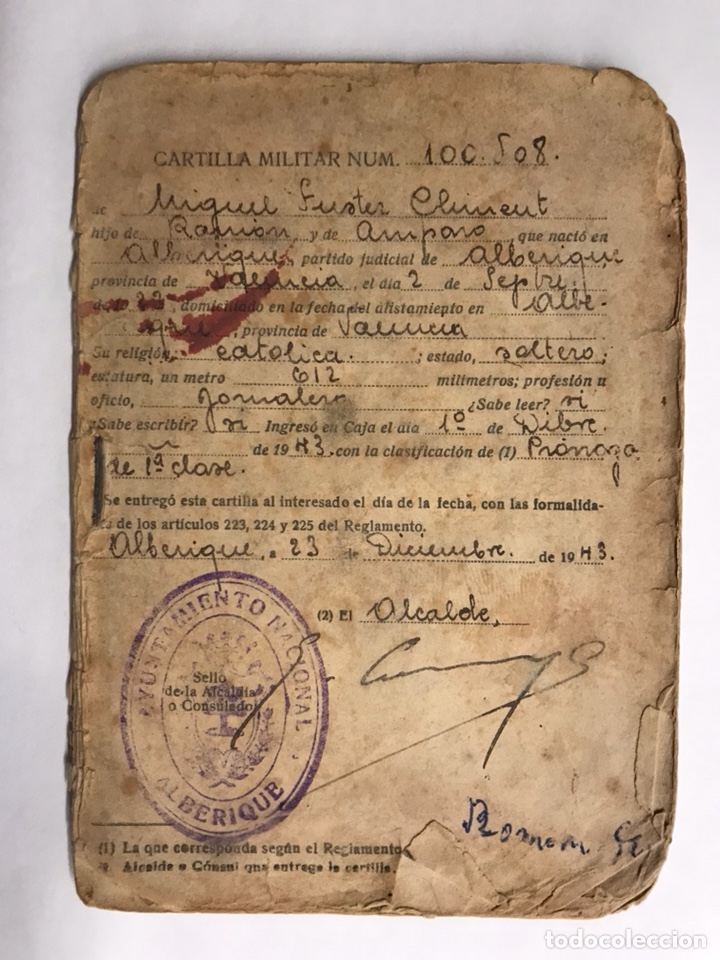 3
CARTILLA MILITAR NUM. 100.508.
de Miguel Fuster Climent
hijo de Ramón, y de Amparo, que nació en
Alberique, partido judicial de Alberique
provincia de Valencia, el día 2 de Sepbre.
de 19 22, domiciliado en la fecha del alistamiento en Albe-
rique, provincia de Valencia
Su religión, católica. ; estado, soltero;
estatura, un metro 612 milímetros; profesión u
oficio, Jornalero ¿Sabe leer? si
¿Sabe escribir? si Ingresó en Caja el día 1º de Dibre.
de 1943. con la clasificación de (1) Prórroga
de 1ª clase.
Se entregó esta cartilla al interesado el día de la fecha, con las formalida-
des de los artículos 223, 224 y 225 del Reglamento.
Alberique, a 23 de Diciembre. de 1943.
(2) El Alcalde,
AYUNTAMIENTO NACIONAL
ALBERIQUE
Sello
de la Alcaldía
o Consulado
Romon
(1) La que corresponda según el Reglamento
Alcalde o Cónsul que entrega la cartilla.
todocoleccion
todocoleccion.net